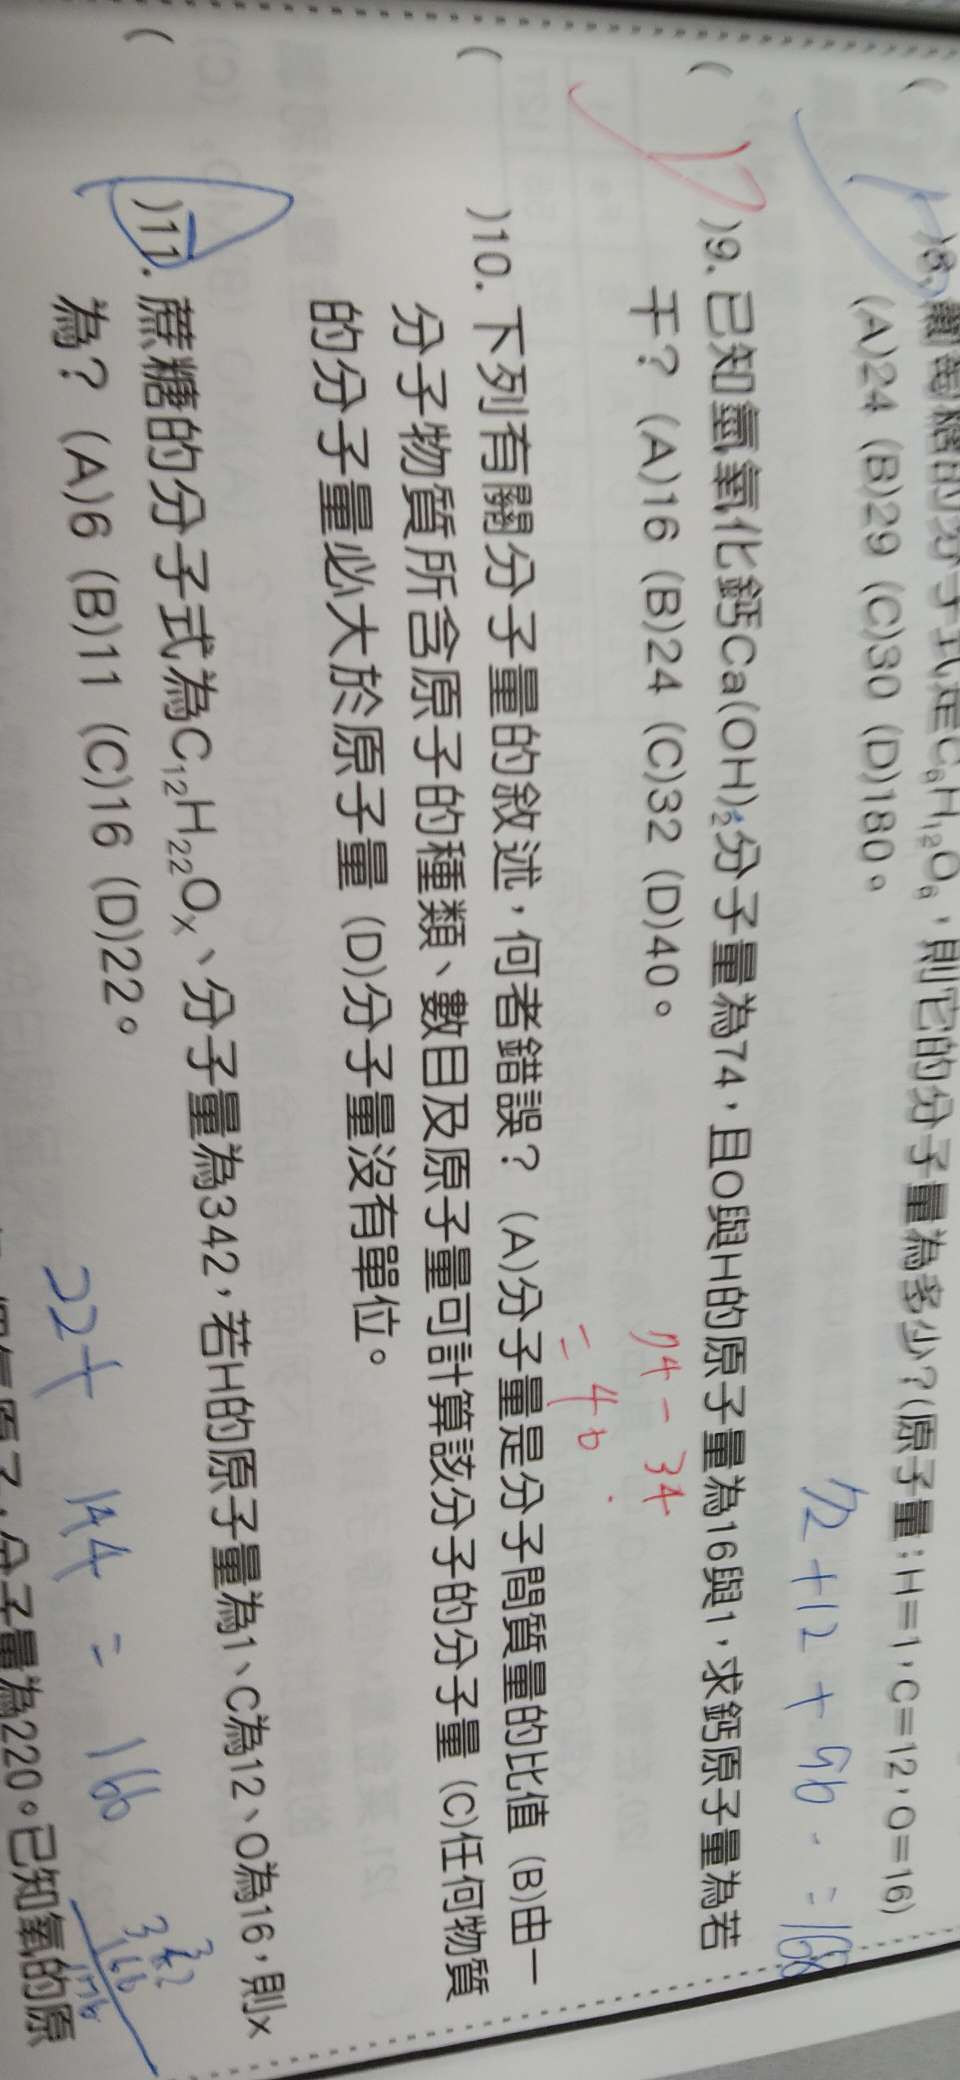 ( )8. 葡萄糖的分子式是C₆H₁₂O₆，則它的分子量為多少？(原子量：H＝1，C＝12，O＝16)
(A)24 (B)29 (C)30 (D)180。
72+12+96=168
( )9. 已知氫氧化鈣Ca(OH)₂分子量為74，且O與H的原子量為16與1，求鈣原子量為若
干？ (A)16 (B)24 (C)32 (D)40。
74-34
=40
( )10. 下列有關分子量的敘述，何者錯誤？ (A)分子量是分子間質量的比值 (B)由一
分子物質所含原子的種類、數目及原子量可計算該分子的分子量 (C)任何物質
的分子量必大於原子量 (D)分子量沒有單位。
( )11. 蔗糖的分子式為C₁₂H₂₂Oₓ、分子量為342，若H的原子量為1、C為12、O為16，則x
為？ (A)6 (B)11 (C)16 (D)22。
22+ 144 = 166
342
166
176
分子量為220。已知氧的原